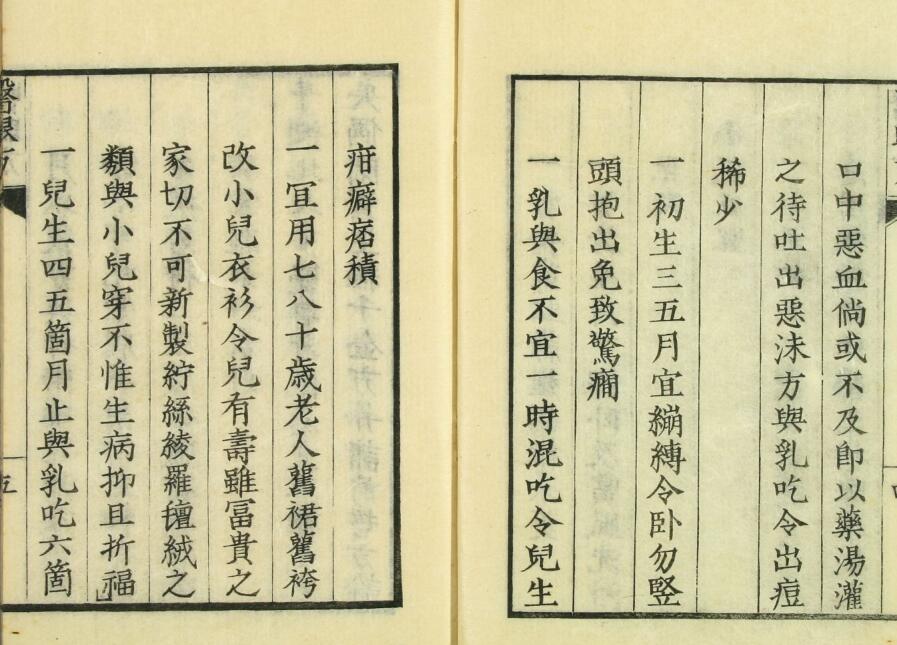 口中惡血倘或不及卽以藥湯灌
之待吐出惡沫方與乳吃令出痘
稀少
一初生三五月宜繃縛令卧勿竪
頭抱出免致驚癇
一乳與食不宜一時混吃令兒生
疳癖痞積
一宜用七八十歲老人舊裙舊袴
改小兒衣衫令兒有壽雖冨貴之
家切不可新製紵絲綾羅氊絨之
類與小兒穿不惟生病抑且折福
一兒生四五箇月止與乳吃六箇
五